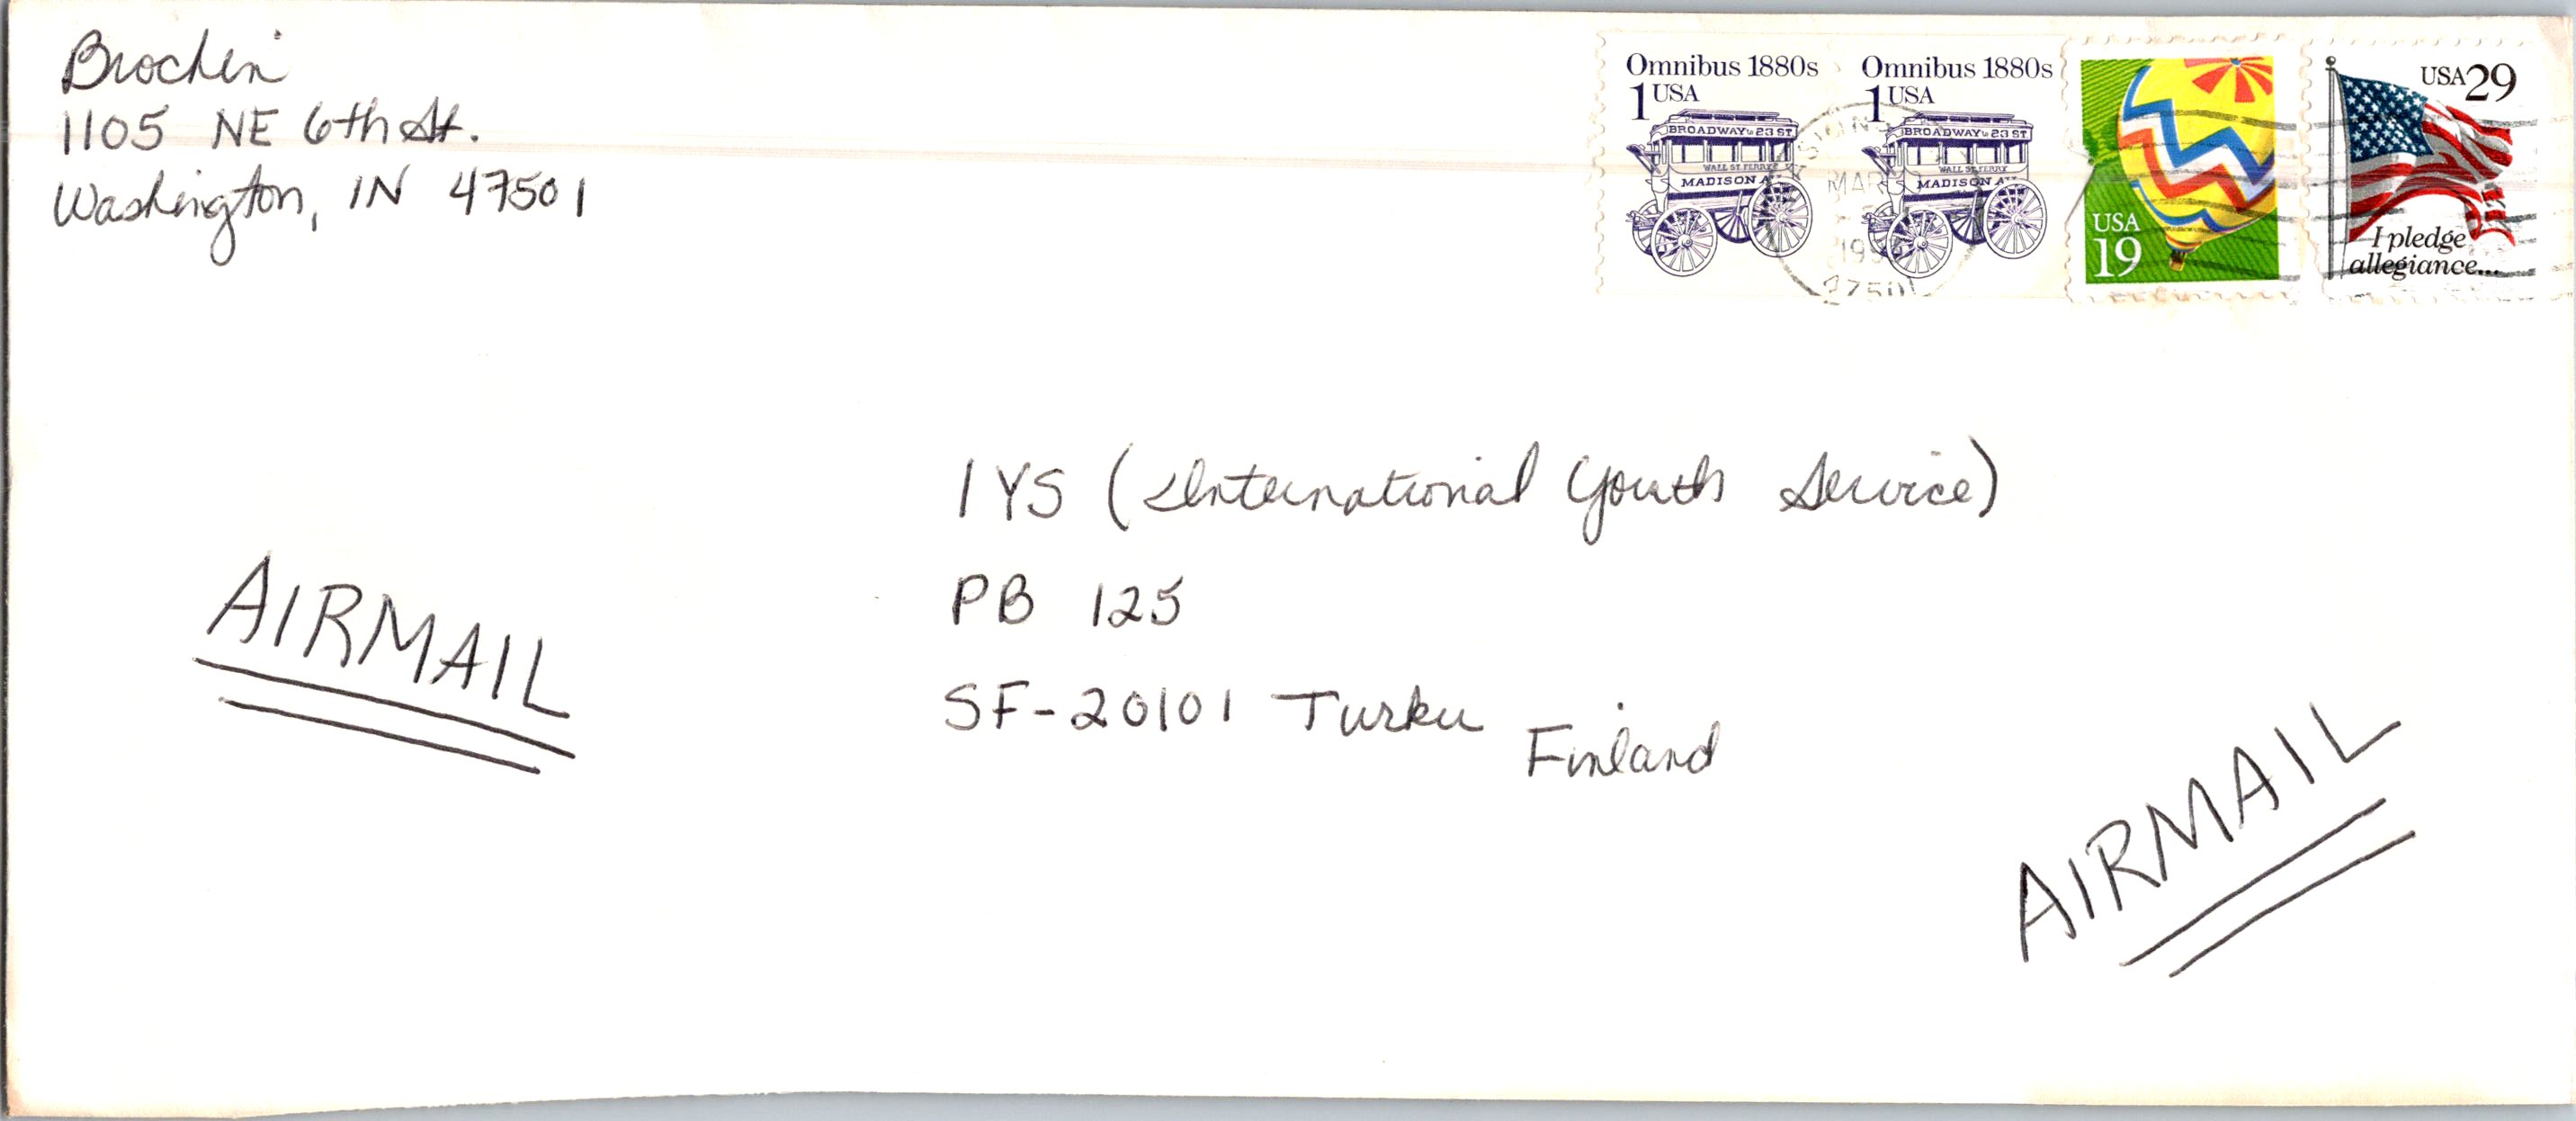 Brochin
1105 NE 6th St.
Washington, IN 47501
Omnibus 1880s
1 USA
BROADWAY to 23 ST
WALL ST. FERRY
MADISON A
Omnibus 1880s
1 USA
BROADWAY to 23 ST
WALL ST. FERRY
MADISON AV
MAR
47501
USA
19
USA 29
I pledge
allegiance...
IYS (International Youth Service)
PB 125
SF-20101 Turku
Finland
AIRMAIL
AIRMAIL